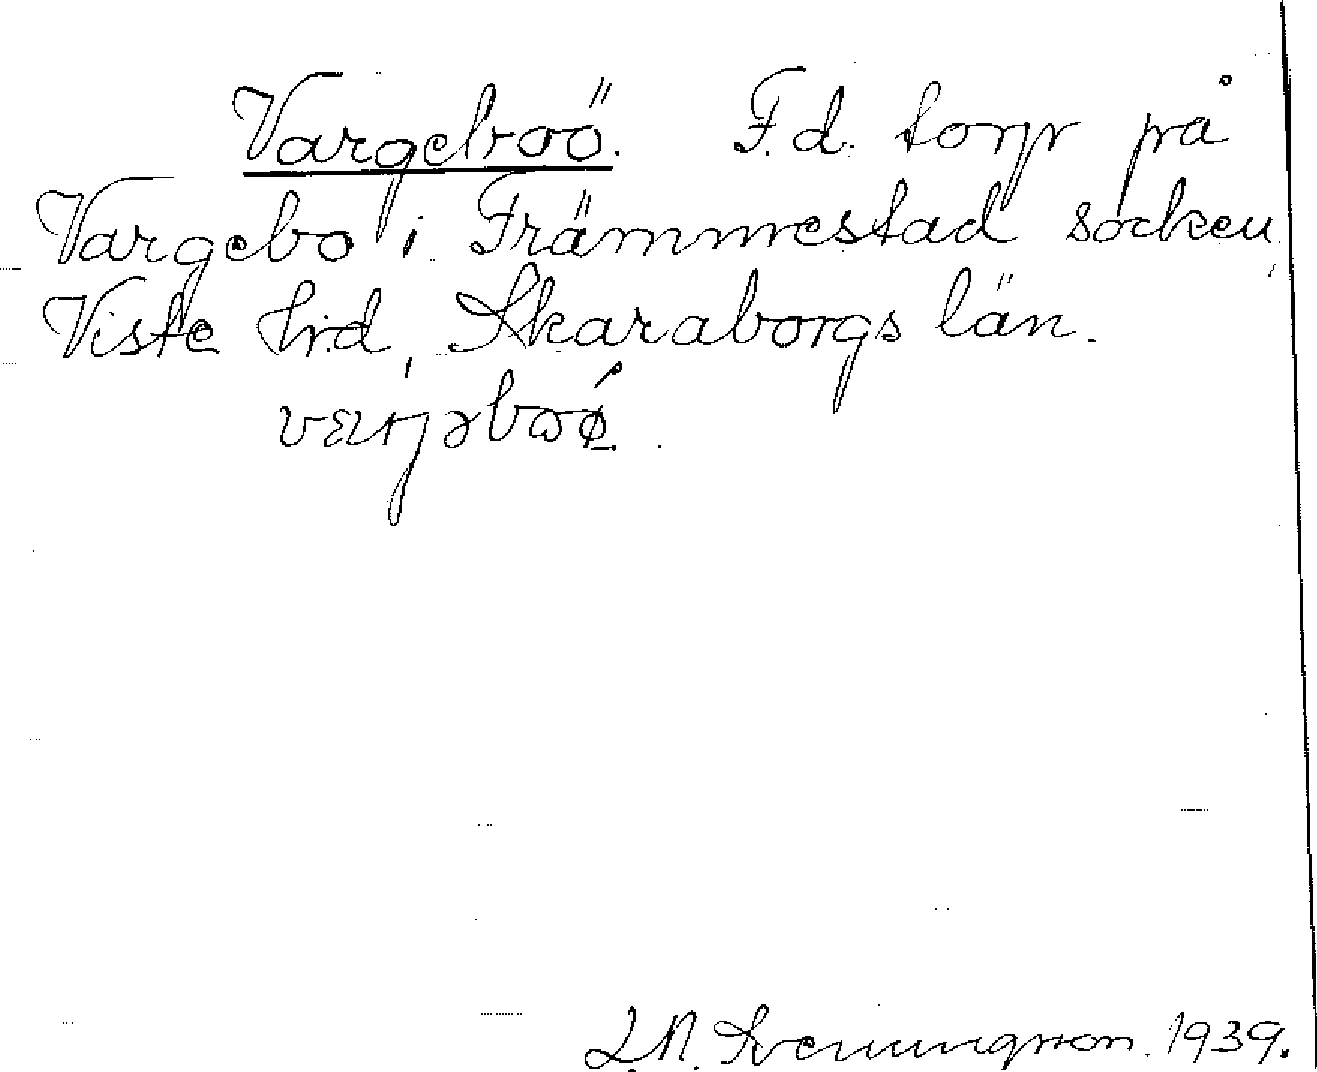 Vargeboö. F.d. torp på
Vargebo i Främmestad socken,
Viste hrd, Skaraborgs län.
L.N. Svenungsson. 1939.